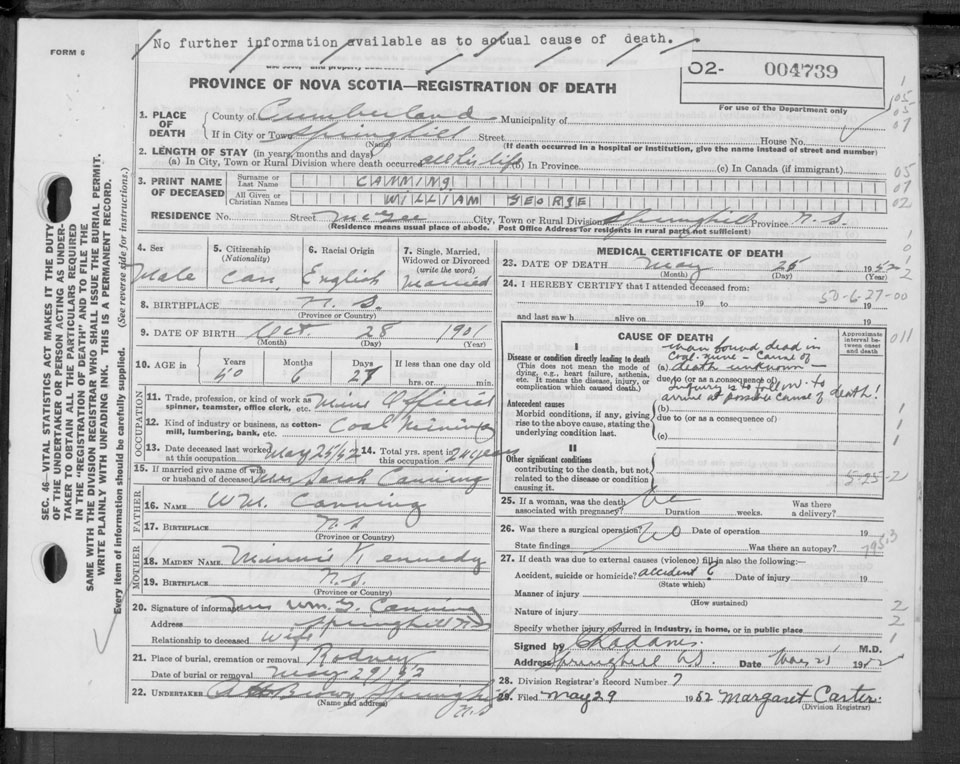 No further information available as to actual cause of death.
FORM 6
O2- 004739
PROVINCE OF NOVA SCOTIA—REGISTRATION OF DEATH
For use of the Department only
1. PLACE OF DEATH
County of Cumberland Municipality of
If in City or Town Springhill Street House No.
(Name) (If death occurred in a hospital or institution, give the name instead of street and number)
2. LENGTH OF STAY (in years, months and days)
(a) In City, Town or Rural Division where death occurred all his life (b) In Province (c) In Canada (if immigrant)
3. PRINT NAME OF DECEASED
Surname or Last Name CANNING
All Given or Christian Names WILLIAM GEORGE
RESIDENCE No. Street McGee City, Town or Rural Division Springhill Province N.S.
(Residence means usual place of abode. Post Office Address for residents in rural parts not sufficient)
4. Sex
Male
5. Citizenship (Nationality)
Can.
6. Racial Origin
English
7. Single, Married, Widowed or Divorced (write the word)
Married
8. BIRTHPLACE N.S.
(Province or Country)
9. DATE OF BIRTH Oct. 28 1901
(Month) (Day) (Year)
10. AGE in Years Months Days If less than one day old
6 27 hrs. or min.
OCCUPATION
11. Trade, profession, or kind of work as spinner, teamster, office clerk, etc. Mine Official
12. Kind of industry or business, as cotton-mill, lumbering, bank, etc. Coal Mining
13. Date deceased last worked at this occupation May 25/52
14. Total yrs. spent in this occupation 24 years
15. If married give name of wife or husband of deceased Mrs Sarah Canning
FATHER
16. NAME Wm. Canning
17. BIRTHPLACE N.S
(Province or Country)
MOTHER
18. MAIDEN NAME Minnie Kennedy
19. BIRTHPLACE N.S.
(Province or Country)
20. Signature of informant Mrs Wm. G. Canning
Address Springhill N.S
Relationship to deceased Wife
21. Place of burial, cremation or removal Rodney
Date of burial or removal May 29/52
22. UNDERTAKER Brown Springhill N.S
(Name and address)
MEDICAL CERTIFICATE OF DEATH
23. DATE OF DEATH May 25 1952
(Month) (Day) (Year)
24. I HEREBY CERTIFY that I attended deceased from:
19 to 19
and last saw h alive on 19
50-6-27-00
CAUSE OF DEATH
Approximate interval between onset and death
I
Disease or condition directly leading to death
(This does not mean the mode of dying, e.g., heart failure, asthenia, etc. It means the disease, injury, or complication which caused death.)
man found dead in
Coal-mine - Cause of
(a) death unknown -
due to (or as a consequence of)
inquiry is to follow. to
arrive at possible cause of death!
Antecedent causes
Morbid conditions, if any, giving rise to the above cause, stating the underlying condition last.
(b)
due to (or as a consequence of)
(c)
II
Other significant conditions
contributing to the death, but not related to the disease or condition causing it.
5-25-2
25. If a woman, was the death associated with pregnancy? Duration weeks. Was there a delivery?
26. Was there a surgical operation? No Date of operation 19
State findings Was there an autopsy?
795.3
27. If death was due to external causes (violence) fill in also the following:—
Accident, suicide or homicide? accident ? Date of injury 19
(State which)
Manner of injury
(How sustained)
Nature of injury
Specify whether injury occurred in industry, in home, or in public place
Signed by M.D.
Address Springhill N.S. Date May 1952
28. Division Registrar's Record Number 7
29. Filed May 29 1952 Margaret Carter
(Division Registrar)
SEC. 46—VITAL STATISTICS ACT MAKES IT THE DUTY
OF THE UNDERTAKER OR PERSON ACTING AS UNDER-
TAKER TO OBTAIN ALL THE PARTICULARS REQUIRED
IN THE "REGISTRATION OF DEATH" AND TO FILE THE
SAME WITH THE DIVISION REGISTRAR WHO SHALL ISSUE THE BURIAL PERMIT.
WRITE PLAINLY WITH UNFADING INK. THIS IS A PERMANENT RECORD.
Every item of information should be carefully supplied. (See reverse side for instructions.)